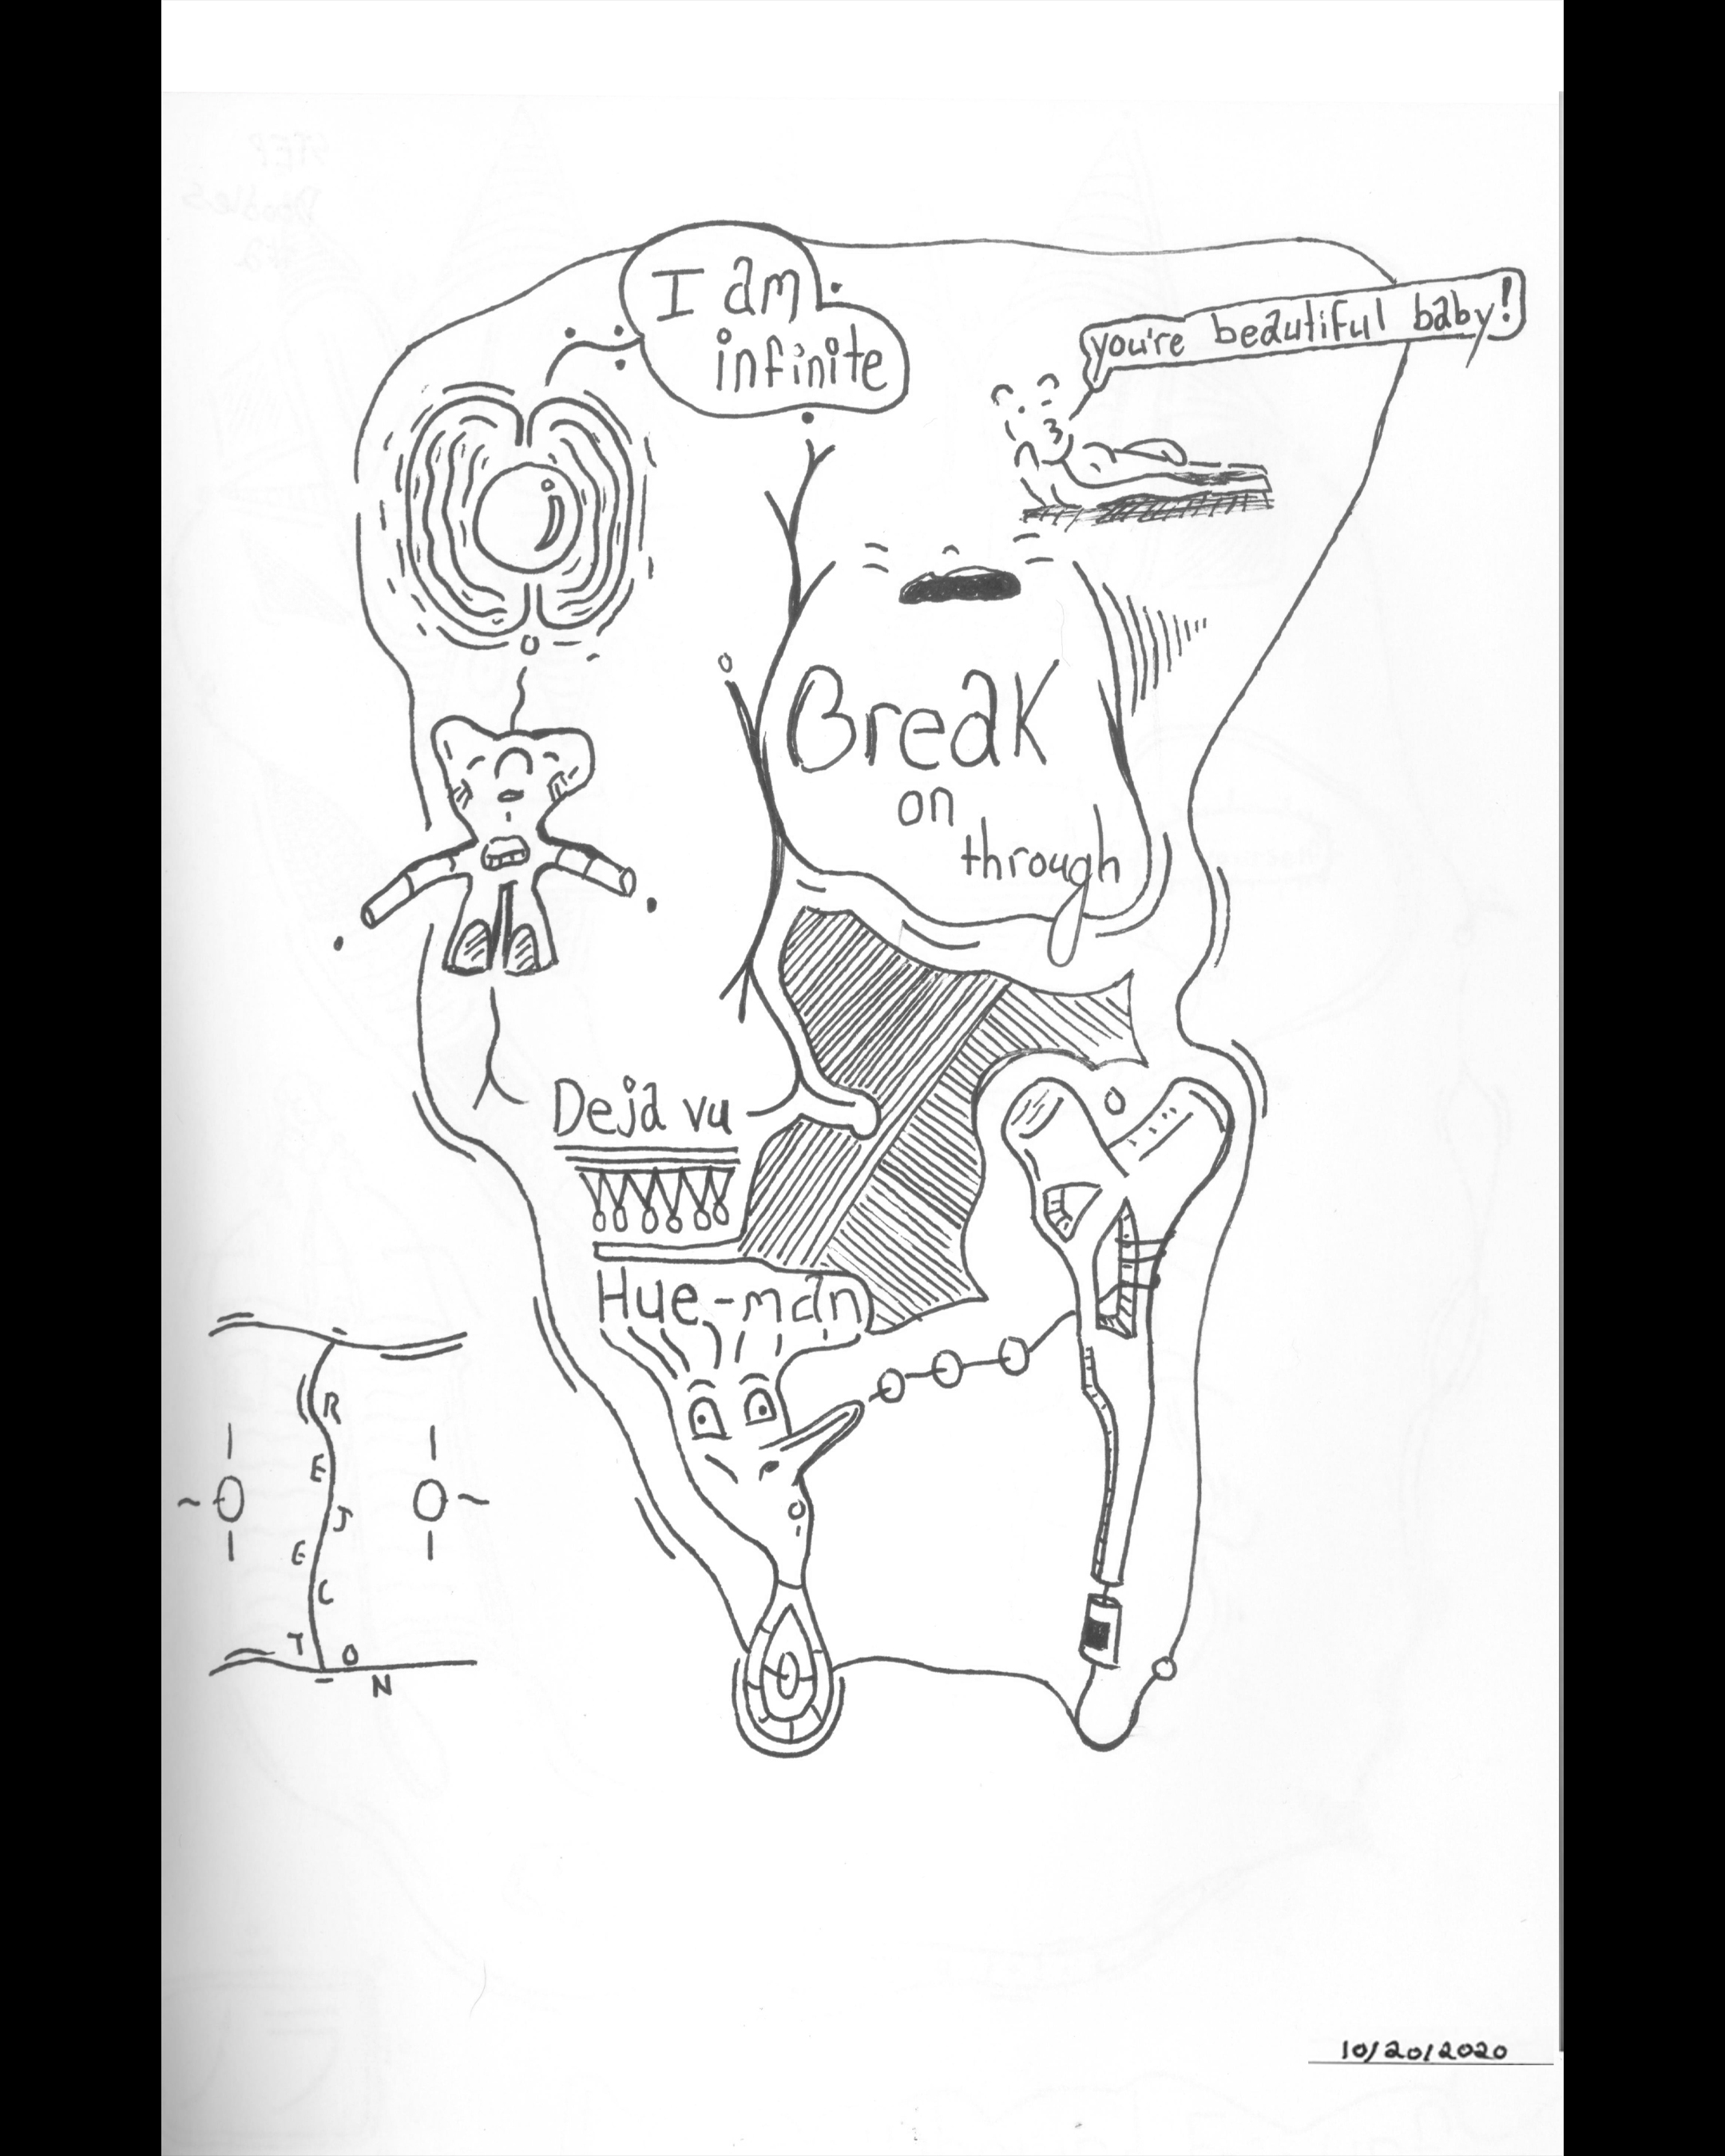 STEP
Doodles
#2
I am
infinite
you're beautiful baby!
Break
on
through
Deja vu
Hue-man
R
E
J
E
C
T
O
N
10/20/2020